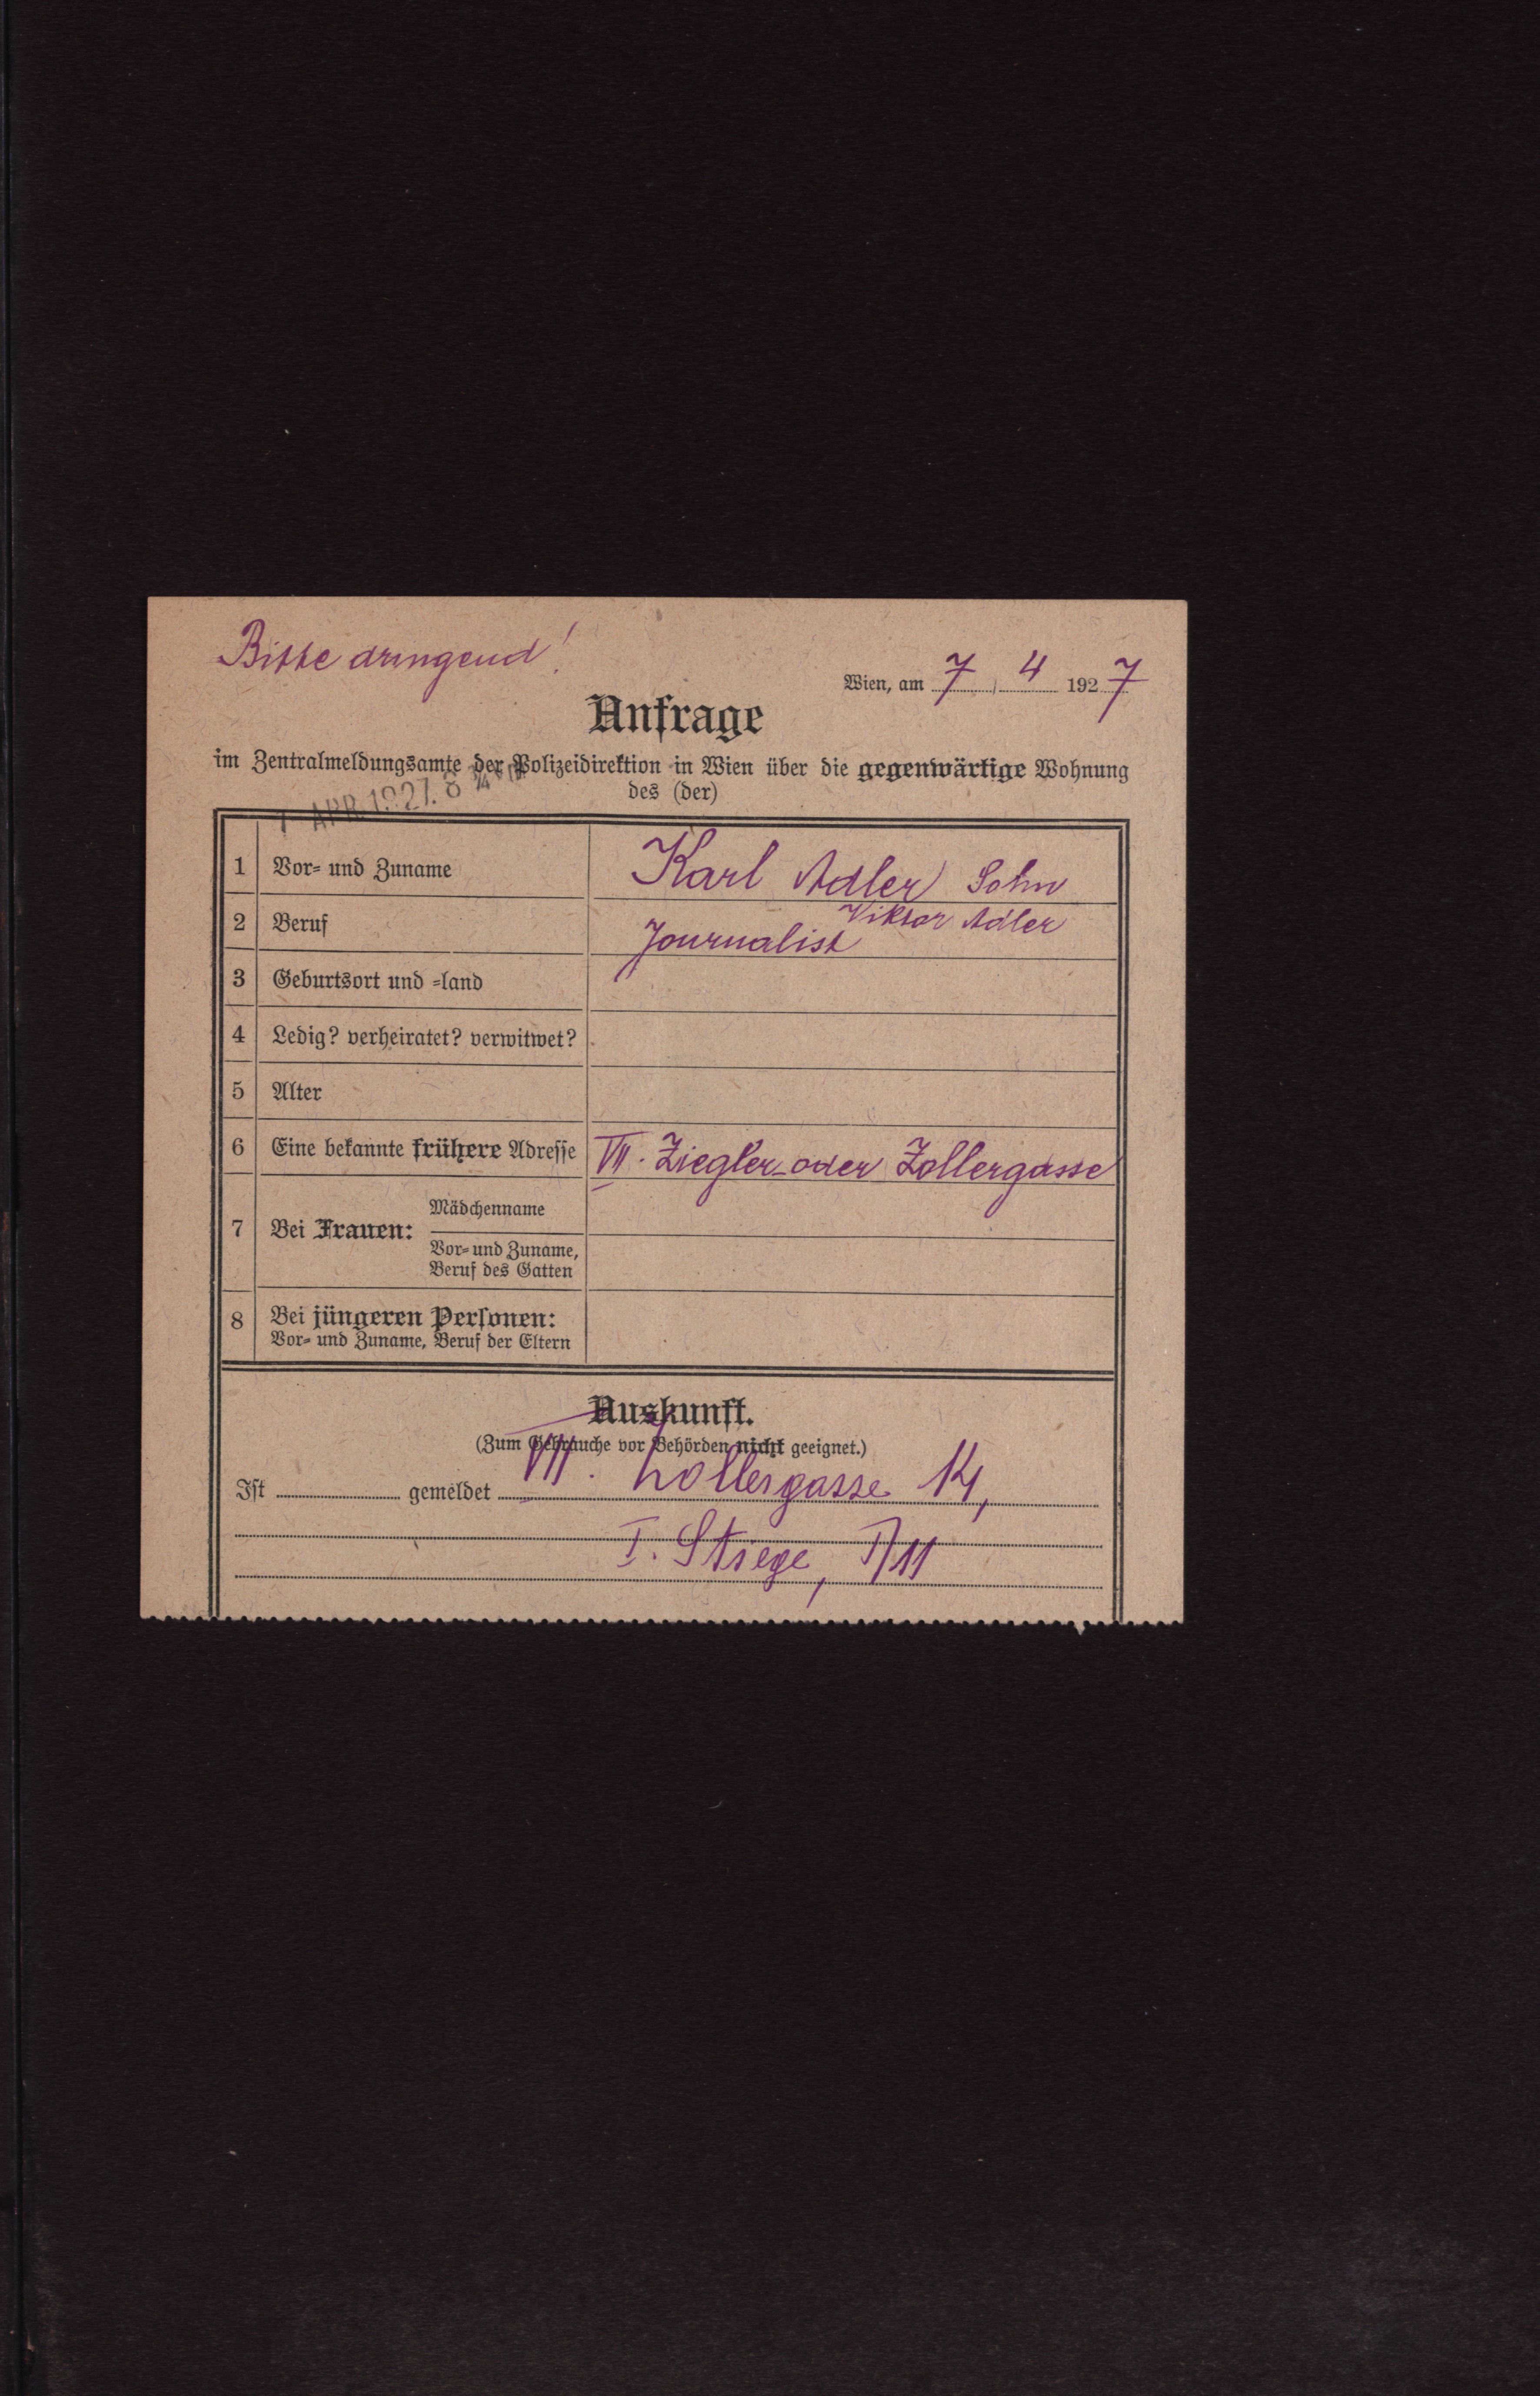 Bitte dringend!
Wien, am 7 / 4 1927
Anfrage
im Zentralmeldungsamte der Polizeidirektion in Wien über die gegenwärtige Wohnung
des (der)
APR. 1927. 8
1 Vor- und Zuname Karl Adler Sohn
Viktor Adler
2 Beruf Journalist
3 Geburtsort und -land
4 Ledig? verheiratet? verwitwet?
5 Alter
6 Eine bekannte frühere Adresse VII. Ziegler- oder Zollergasse
7 Bei Frauen: Mädchenname
Vor- und Zuname,
Beruf des Gatten
8 Bei jüngeren Personen:
Vor- und Zuname, Beruf der Eltern
Auskunft.
(Zum Gebrauche vor Behörden nicht geeignet.)
Ist gemeldet VII. Zollergasse 14,
I. Stiege, I/11